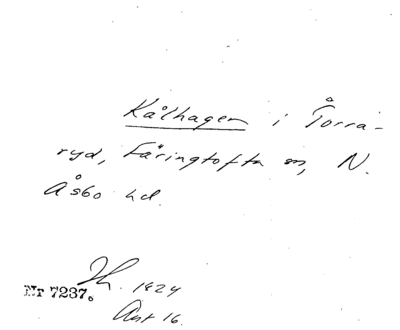 Kålhagen i Torra-
ryd, Färingtofta sn, N.
Åsbo hd.
1924
Nr 7237.
Avt 16.